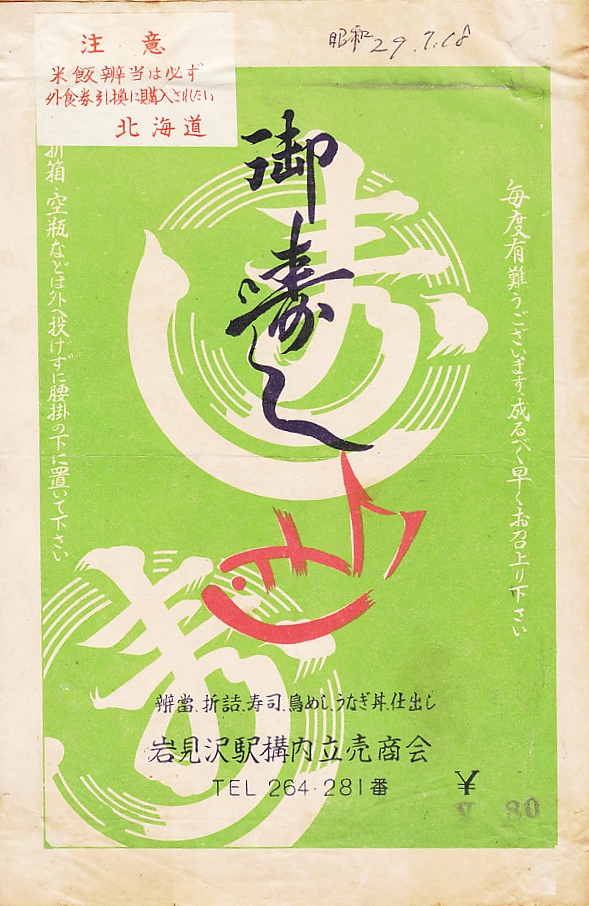 注意
米飯辨当は必ず
外食券引換に購入されたい
北海道
昭和29.7.18
御寿し
毎度有難うございます、成るべく早くお召上り下さい
折箱、空瓶などは外へ投げずに腰掛の下に置いて下さい
辨當、折詰、寿司、鳥めし、うなぎ丼、仕出し
岩見沢駅構内立売商会
TEL 264・281番
¥
80